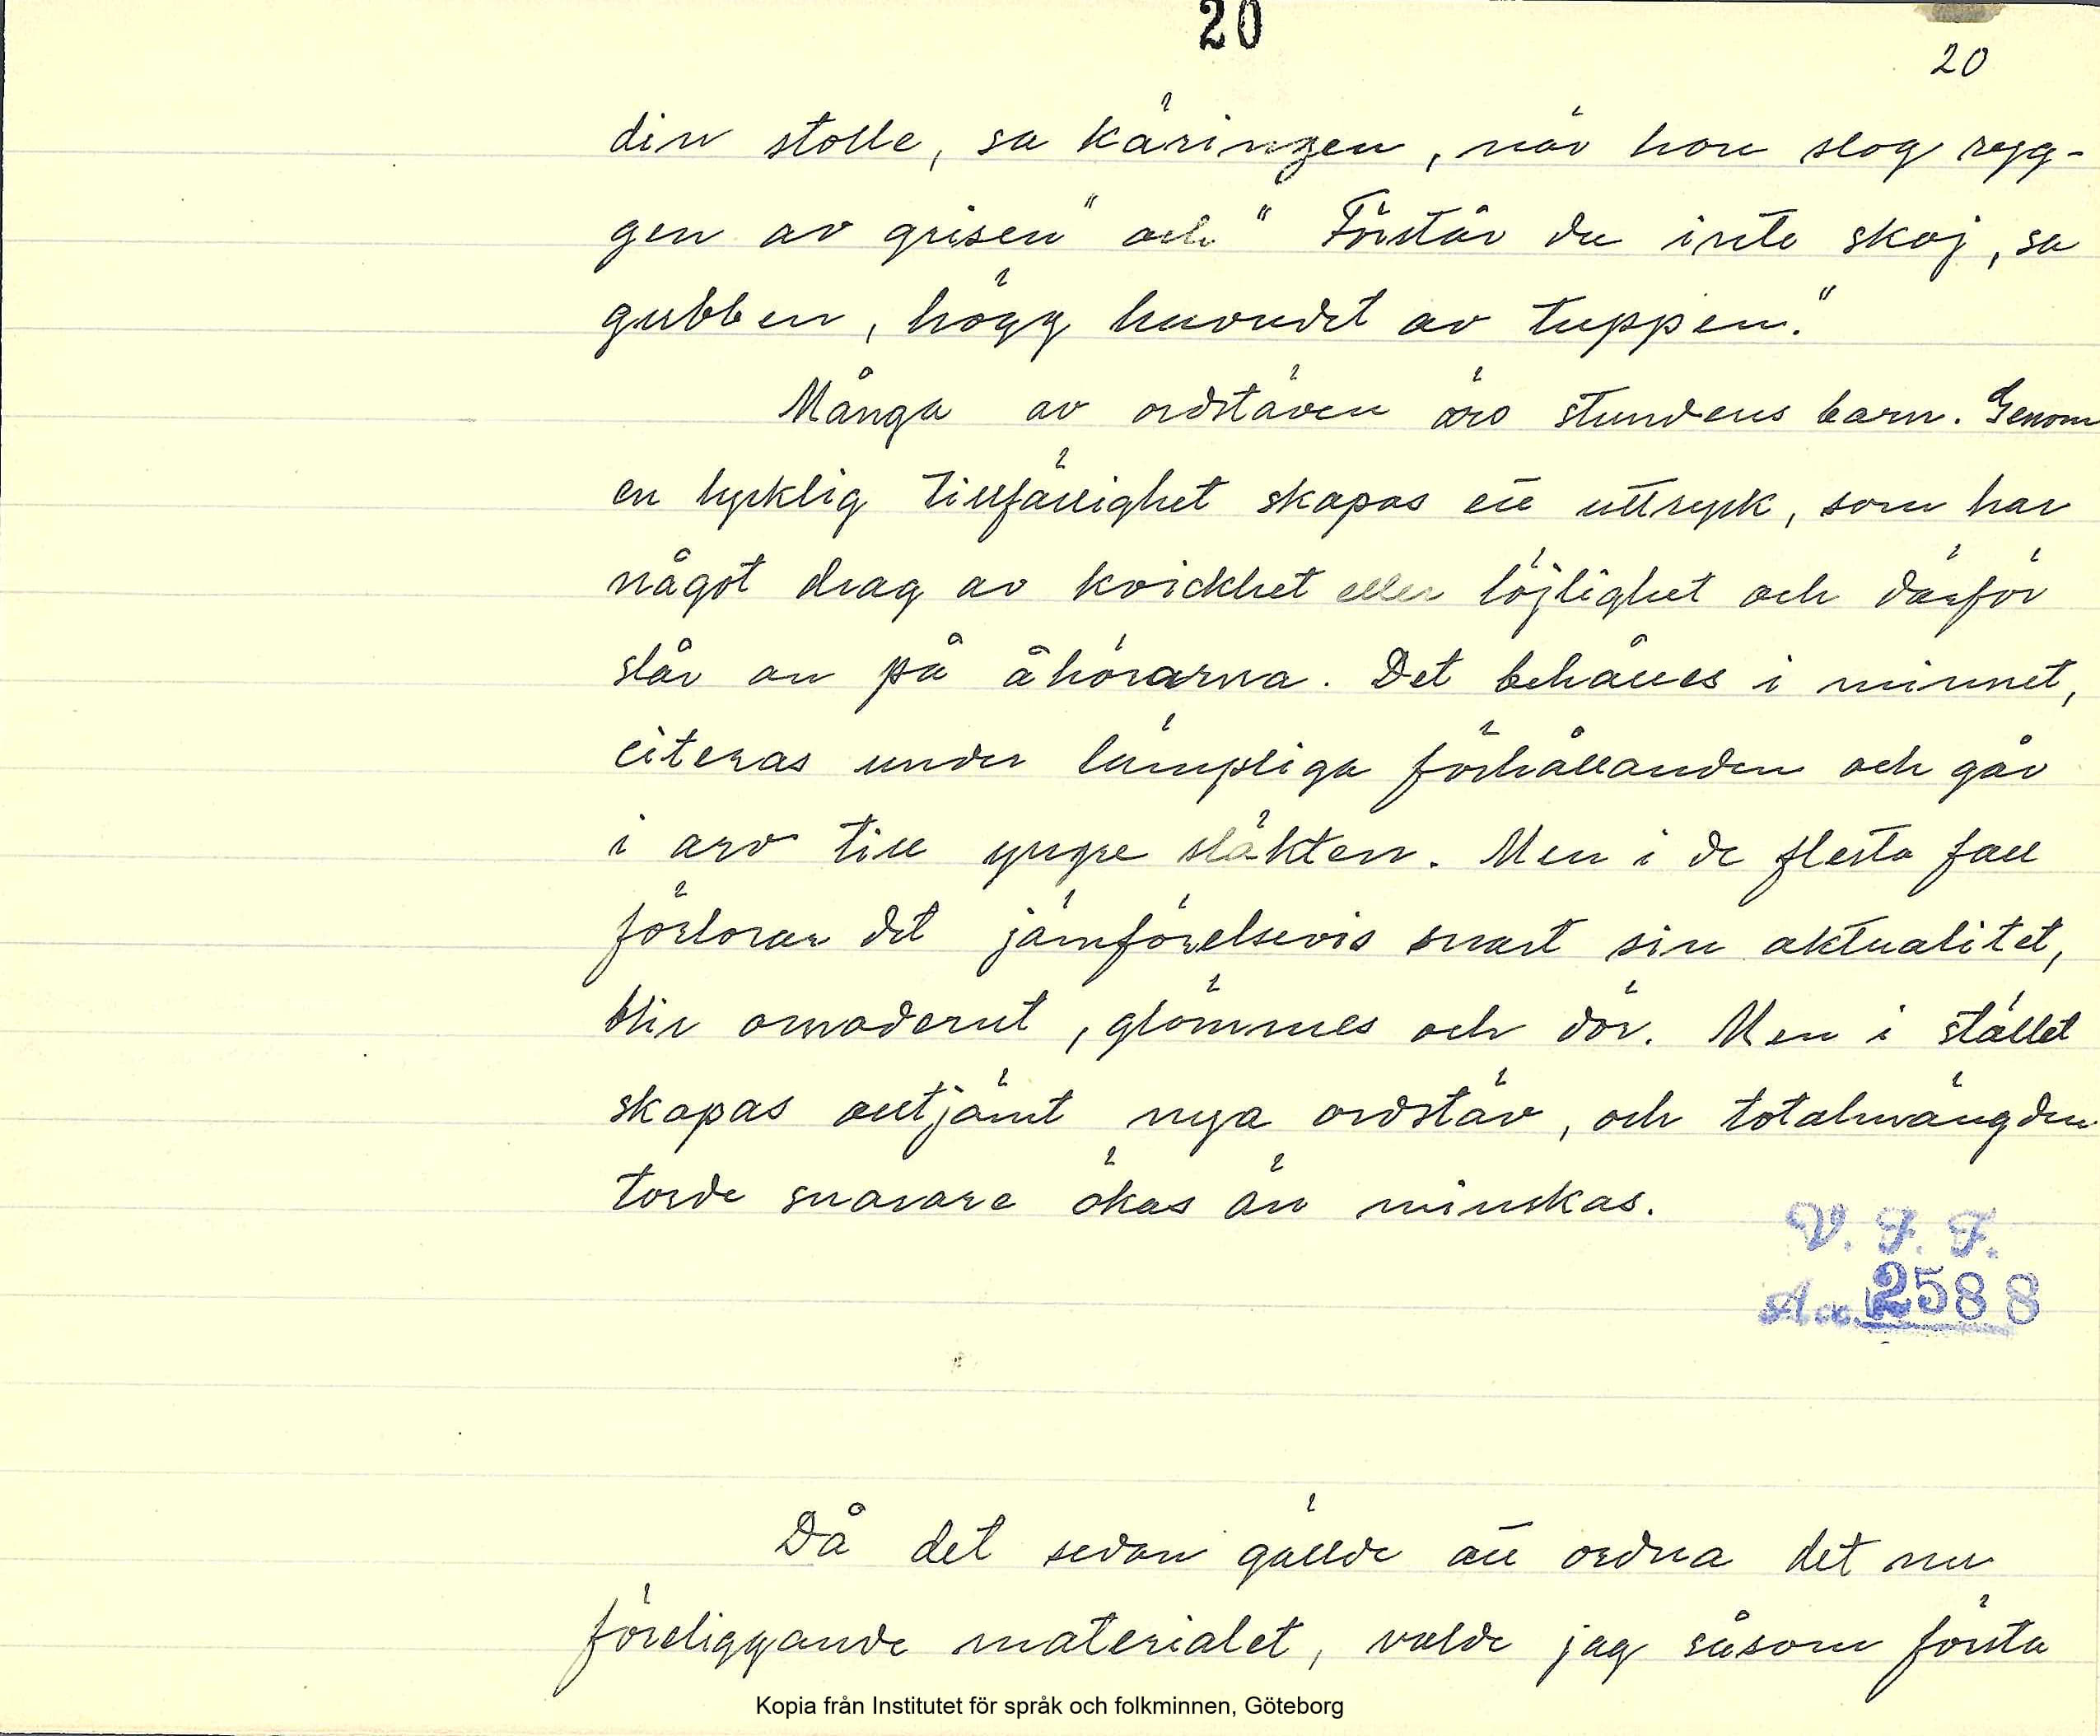 20
20
din stolle, sa käringen, när hon slog ryg-
gen av grisen" och "Förstår du inte skoj, sa
gubben, högg huvudet av tuppen."
Många av ordstäven äro stundens barn. Genom
en lycklig tillfällighet skapas ett uttryck, som har
något drag av kvickhet eller löjlighet och därför
slår an på åhörarna. Det behålles i minnet,
citeras under lämpliga förhållanden och går
i arv till yngre släkten. Men i de flesta fall
förlorar det jämförelsevis snart sin aktualitet,
blir omodernt, glömmes och dör. Men i stället
skapas alltjämt nya ordstäv, och totalmängden
torde snarare ökas än minskas.
V. F. F.
Acc. 2588
Då det sedan gällde att ordna det nu
föreliggande materialet, valde jag såsom första
Kopia från Institutet för språk och folkminnen, Göteborg